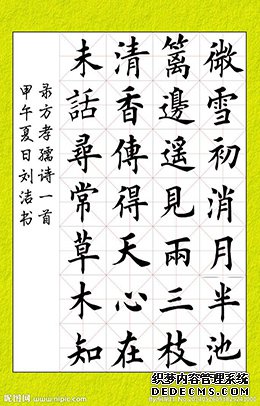 微雪初消月半池
篱邊遥見兩三枝
清香傳得天心在
未話尋常草木知
录方孝孺诗一首
甲午夏日刘洁书
昵图网 www.nipic.com
织梦内容管理系统
DEDECMS.COM